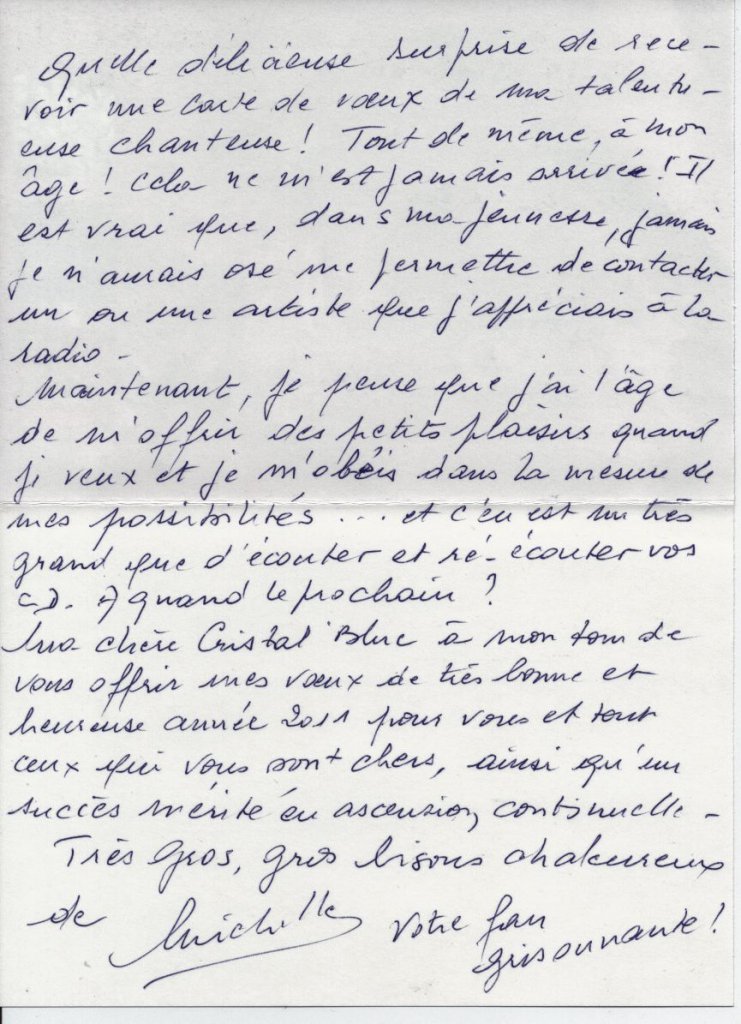 Quelle délicieuse surprise de rece-
voir une carte de vœux de ma talentu-
euse chanteuse! Tout de même, à mon
âge! Cela ne m'est jamais arrivée! Il
est vrai que, dans ma jeunesse, jamais
je n'aurais osé me permettre de contacter
un ou une artiste que j'appréciais à la
radio -
Maintenant, je pense que j'ai l'âge
de m'offrir des petits plaisirs quand
je veux et je m'obéis dans la mesure de
mes possibilités ... et c'en est un très
grand que d'écouter et ré-écouter vos
C.D. A quand le prochain ?
Ma chère Cristal Blue à mon tour de
vous offrir mes vœux de très bonne et
heureuse année 2011 pour vous et tout
ceux qui vous sont chers, ainsi qu'un
succès mérité en ascension continuelle -
Très Gros, gros bisous chaleureux
de Michelle Votre fan
grisonnante!